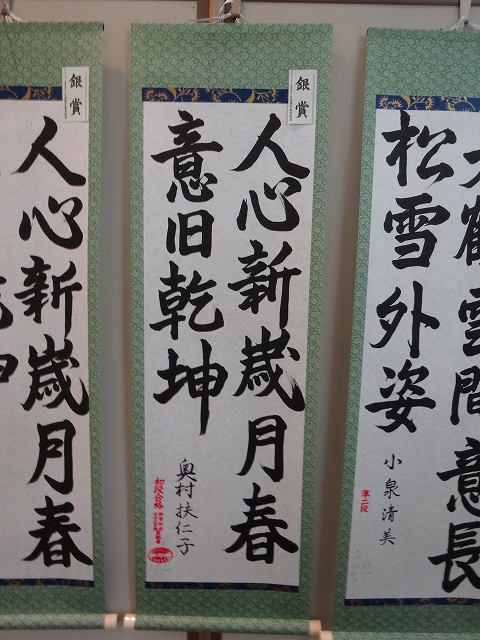 大鶴雲間意長
松雪外姿
小泉清美
準二段
銀賞
人心新歳月春
意旧乾坤
奥村扶仁子
初段合格
銀賞
人心新歳月春